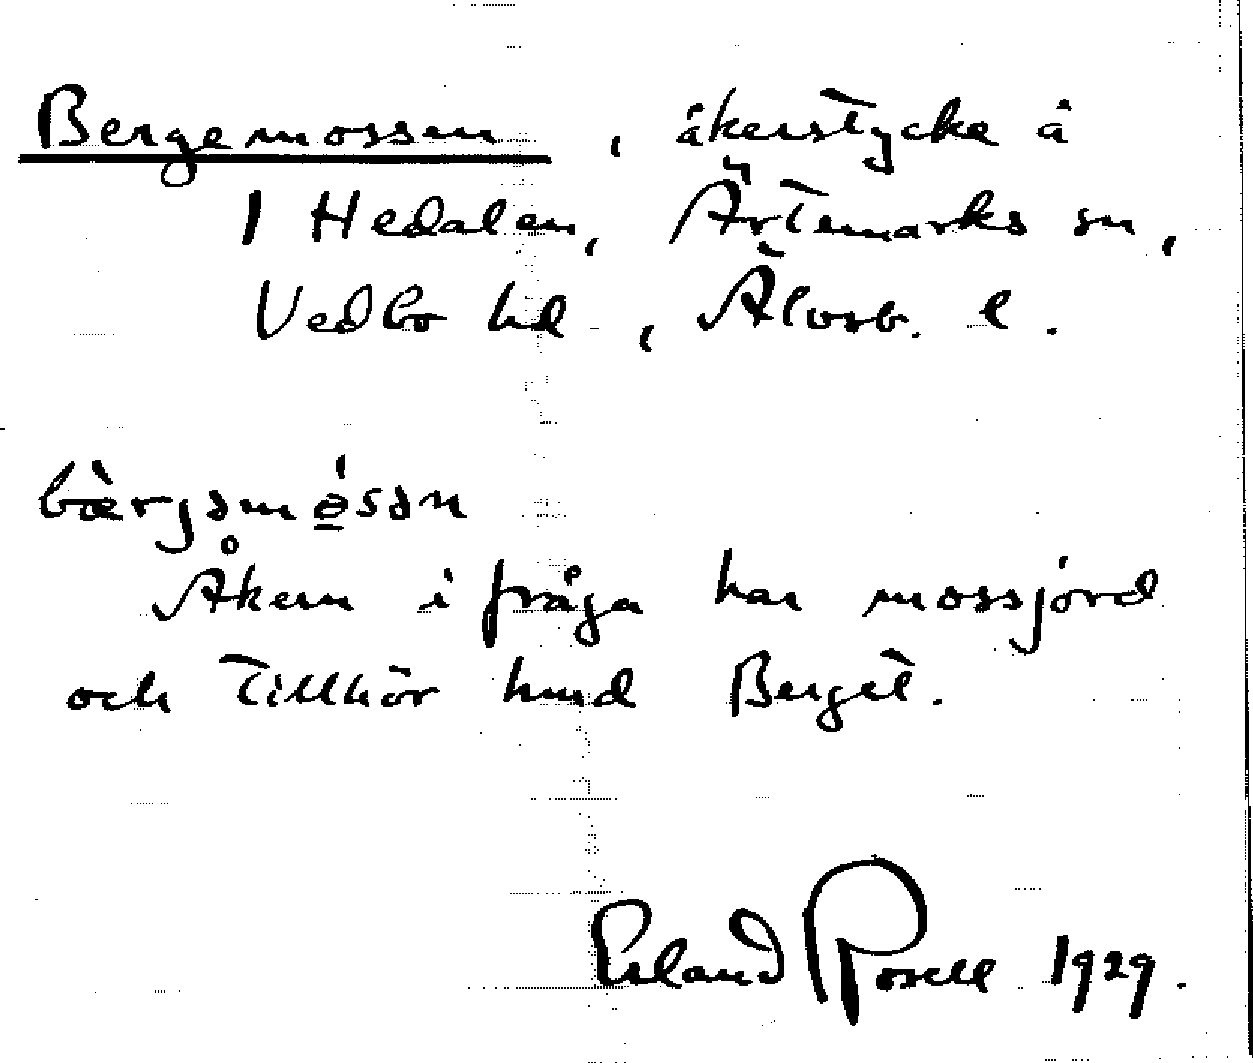 Bergemossen, åkerstycke å
1 Hedalen, Ärtemarks sn,
Vedbo hd, Älvsb. l.
bærgəmósən
Åkern i fråga har mossjord
och tillhör hmd Berget.
Erland Rosell 1929.